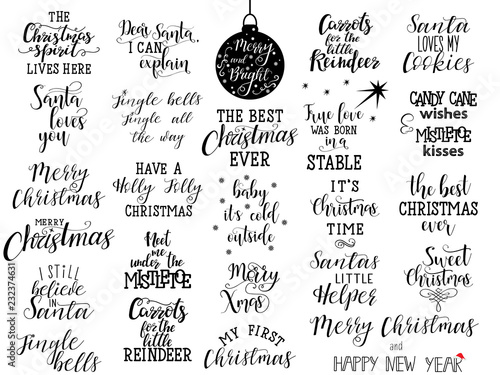 THE
Christmas
spirit
LIVES HERE
Dear Santa,
I CAN
explain
Merry
and
Bright
Carrots
for the
little
Reindeer
Santa
LOVES MY
Cookies
Santa
loves
you
Jingle bells
Jingle all
the way
THE BEST
Christmas
EVER
True love
WAS BORN
in a
STABLE
CANDY CANE
wishes
&
MISTLETOE
kisses
Merry
Christmas
HAVE A
Holly Jolly
CHRISTMAS
baby
it's cold
outside
IT'S
Christmas
TIME
the best
CHRISTMAS
ever
MERRY
Christmas
Meet
me
under the
MISTLETOE
Merry
Xmas
Santa's
LITTLE
Helper
Sweet
Christmas
I STILL
believe
IN
Santa
Carrots
for the
little
REINDEER
MY FIRST
Christmas
Merry Christmas
and
HAPPY NEW YEAR
Jingle
bells
Adobe Stock | #232374631